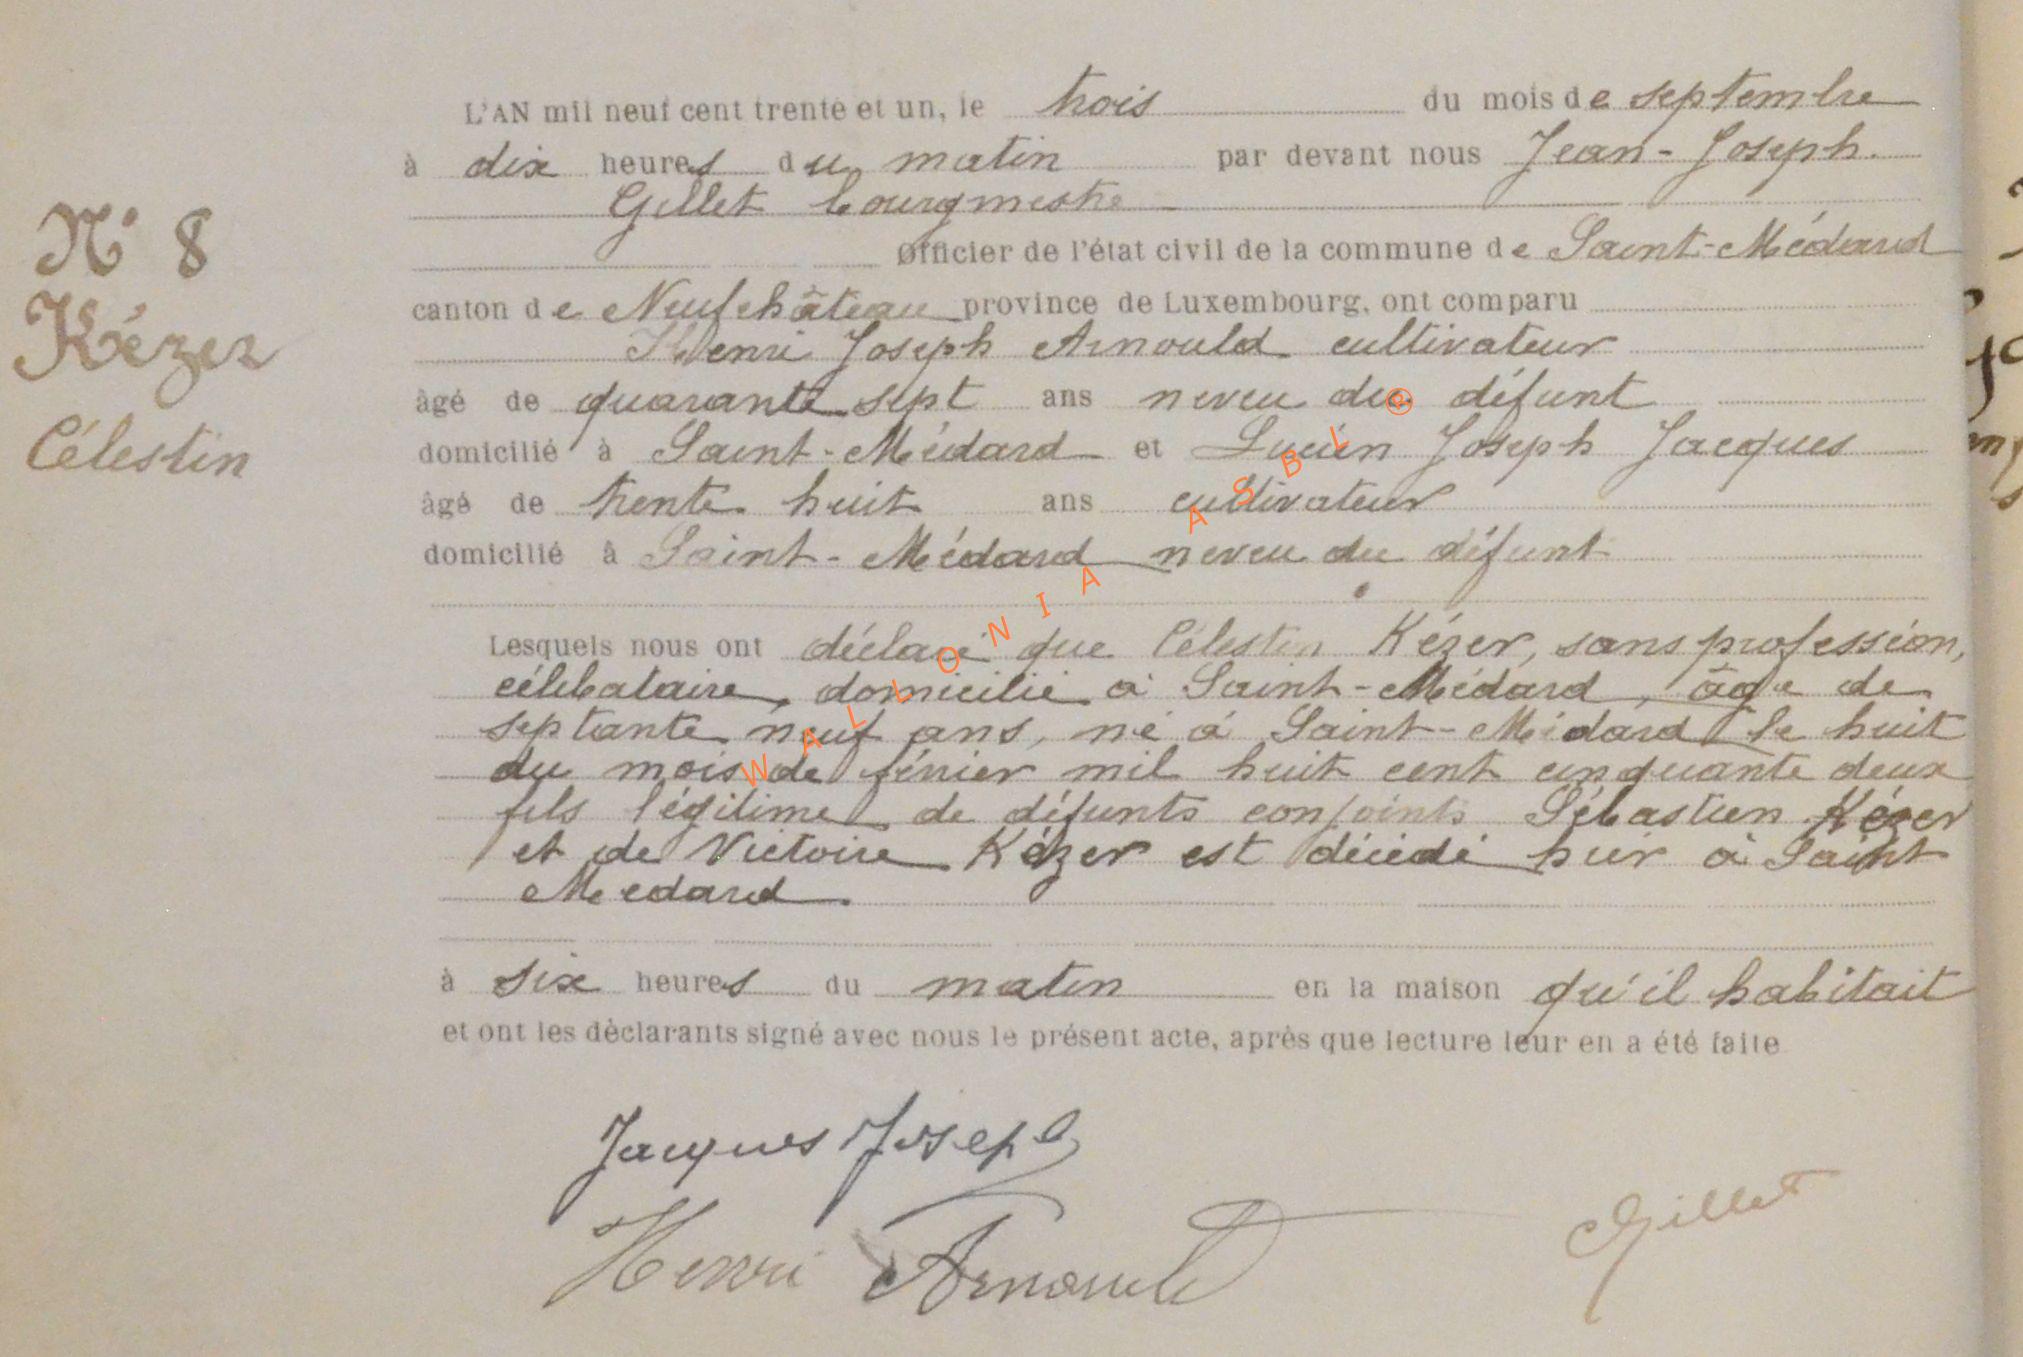 N° 8
Kézer
Célestin
L'AN mil neuf cent trente et un, le trois du mois de septembre
à dix heures du matin par devant nous Jean-Joseph
Gillet bourgmestre
Officier de l'état civil de la commune de Saint-Médard
canton de Neufchâteau province de Luxembourg, ont comparu
Henri Joseph Arnould cultivateur
âgé de quarante sept ans neveu du défunt
domicilié à Saint-Médard et Lucien Joseph Jacques
âgé de trente huit ans cultivateur
domicilié à Saint-Médard neveu du défunt
Lesquels nous ont déclaré que Célestin Kézer, sans profession,
célibataire, domicilié à Saint-Médard, âgé de
septante neuf ans, né à Saint-Médard le huit
du mois de février mil huit cent cinquante deux
fils légitime de défunts conjoints Sébastien Kézer
et de Victoire Kézer est décédé hier à Saint
Médard.
à six heures du matin en la maison qu'il habitait
et ont les déclarants signé avec nous le présent acte, après que lecture leur en a été faite
Jacques Joseph
Henri Arnould
Gillet
WALLONIA ASBL ®